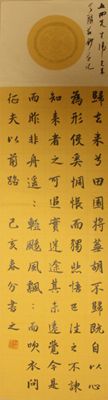 歸去來兮田園將蕪胡不歸既自以心
為形役奚惆悵而獨悲悟已往之不諫
知來者之可追實迷途其未遠覺今是
而昨非舟遙:輕颺風飄:而吹衣問
征夫以前路 己亥春分書之